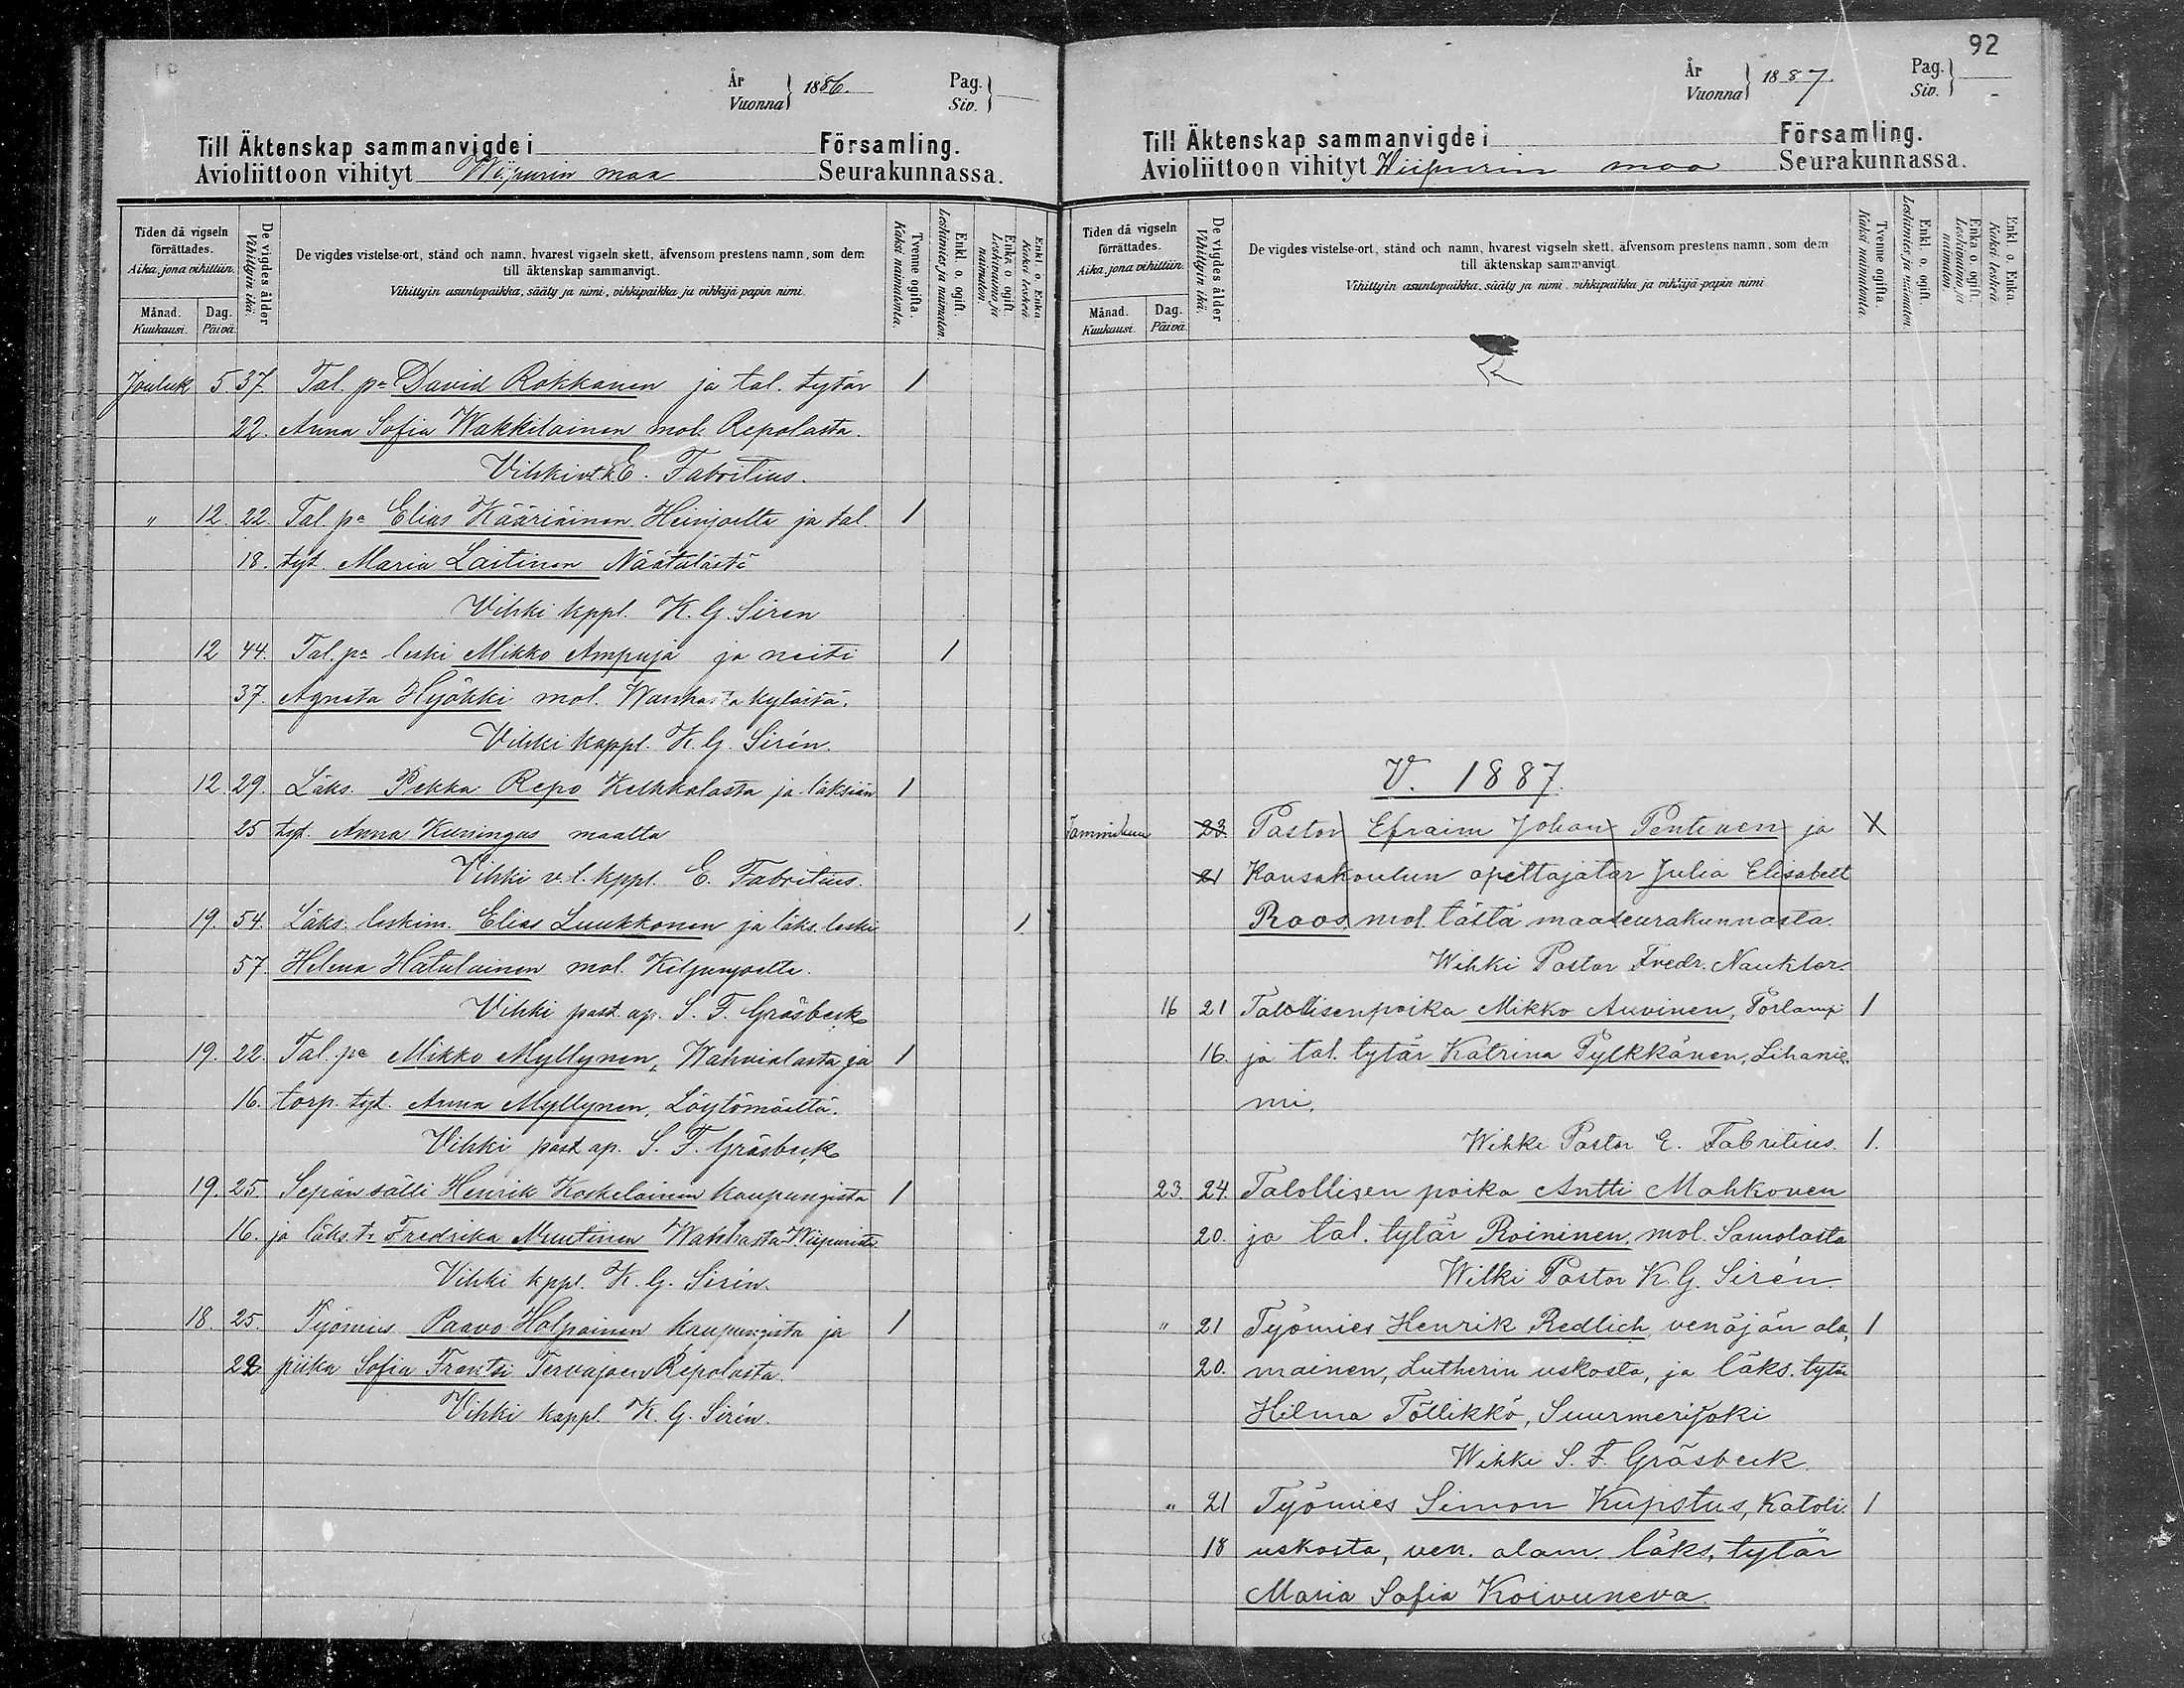 År Vuonna } 1886. Pag. Siv. }
Till Äktenskap sammanvigde i Församling.
Avioliittoon vihityt Wiipurin maa Seurakunnassa.
Tiden då vigseln förrättades.
Aika, jona vihittiin.
Månad. Kuukausi.
Dag. Päivä.
De vigdes ålder
Vihittyin ikä.
De vigdes vistelse-ort, stånd och namn, hvarest vigseln skett, äfvensom prestens namn, som dem
till äktenskap sammanvigt.
Vihittyin asuntopaikka, sääty ja nimi, vihkipaikka ja vihkijä-papin nimi.
Tvenne ogifta.
Kaksi naimatonta.
Enkl. o. ogift.
Leskimies ja naimaton.
Enka o. ogift.
Leskivaimo ja naimaton.
Enkl. o. Enka.
Kaksi leskeä.
Jouluk 5. 37. Tal. pa David Rokkanen ja tal. tytär 1
22. Anna Sofia Wakkilainen mol. Repolasta.
Vihki vt. k. E. Fabritius.
" 12. 22. Tal. pa Elias Kääriäinen Heinjoelta ja tal. 1
18. tyt. Maria Laitinen Näätälästä
Vihki kppl. K. G. Siren
12 44. Tal. pa leski Mikko Ampuja ja neiti 1
37. Agneta Hyökki mol. Wanhasta kylästä.
Vihki kappl. K. G. Sirén.
12. 29. Läks. Pekka Repo Kelkkalasta ja läksiän 1
25 tyt. Anna Kuningas maalta
Vihki v. t. kppl. E. Fabritius.
19. 54. Läks. leskim. Elias Luukkonen ja läks. leski 1
57 Helena Hatulainen mol. Kilpeenjoelta.
Vihki past. ap. S. F. Gräsbeck
19. 22. Tal. pa Mikko Myllynen, Wahvialasta ja 1
16. torp. tyt. Anna Myllynen, Löytömäeltä.
Vihki past ap. S. F. Gräsbeck
19. 25. Sepän sälli Henrik Koskelainen kaupungista 1
16. ja läks. tr Fredrika Muutinen Wanhasta Wiipurista
Vihki kppl. K. G. Sirén.
18. 25. Työmies Paavo Holpainen kaupungista ja 1
22 piika Sofia Frantti Tervajoen Repolasta.
Vihki kappl. K. G. Sirén.
92
År Vuonna } 1887 Pag. Siv. } -
Till Äktenskap sammanvigde i Församling.
Avioliittoon vihityt Wiipurin maa Seurakunnassa.
Tiden då vigseln förrättades.
Aika, jona vihittiin.
Månad. Kuukausi.
Dag. Päivä.
De vigdes ålder
Vihittyin ikä.
De vigdes vistelse-ort, stånd och namn, hvarest vigseln skett, äfvensom prestens namn, som dem
till äktenskap sammanvigt.
Vihittyin asuntopaikka, sääty ja nimi, vihkipaikka ja vihkijä-papin nimi
Tvenne ogifta.
Kaksi naimatonta
Enkl. o. ogift.
Leskimies ja naimaton.
Enka o. ogift.
Leskivaimo ja naimaton.
Enkl. o. Enka.
Kaksi leskeä.
V. 1887.
Tammikuu 23. Pastor Efraim Johan Pentinen ja X
21 Kansakoulun opettajatar Julia Elisabett
Roos mol. tästä maaseurakunnasta.
Wihki Pastor Fredr. Naukler.
16 21 Talollisenpoika Mikko Auvinen, Porlampi 1
16. ja tal. tytär Katrina Pylkkänen, Lihanie-
mi.
Wihki Pastor E. Fabritius. 1.
23. 24. Talollisen poika Antti Mahkonen
20. ja tal. tytär Roininen, mol. Samolasta
Wilki Pastor K. G. Sirén.
" 21 Työmies Henrik Redlich, venäjän ala, 1
20. mainen, Lutherin uskosta, ja läks. tytär
Hilma Töllikkö, Suurmerijoki
Wihki S. F. Gräsbeck
" 21 Työmies Simon Kupstus, Katoli. 1
18 uskosta, ven. alam. läks. tytär
Maria Sofia Koivuneva.